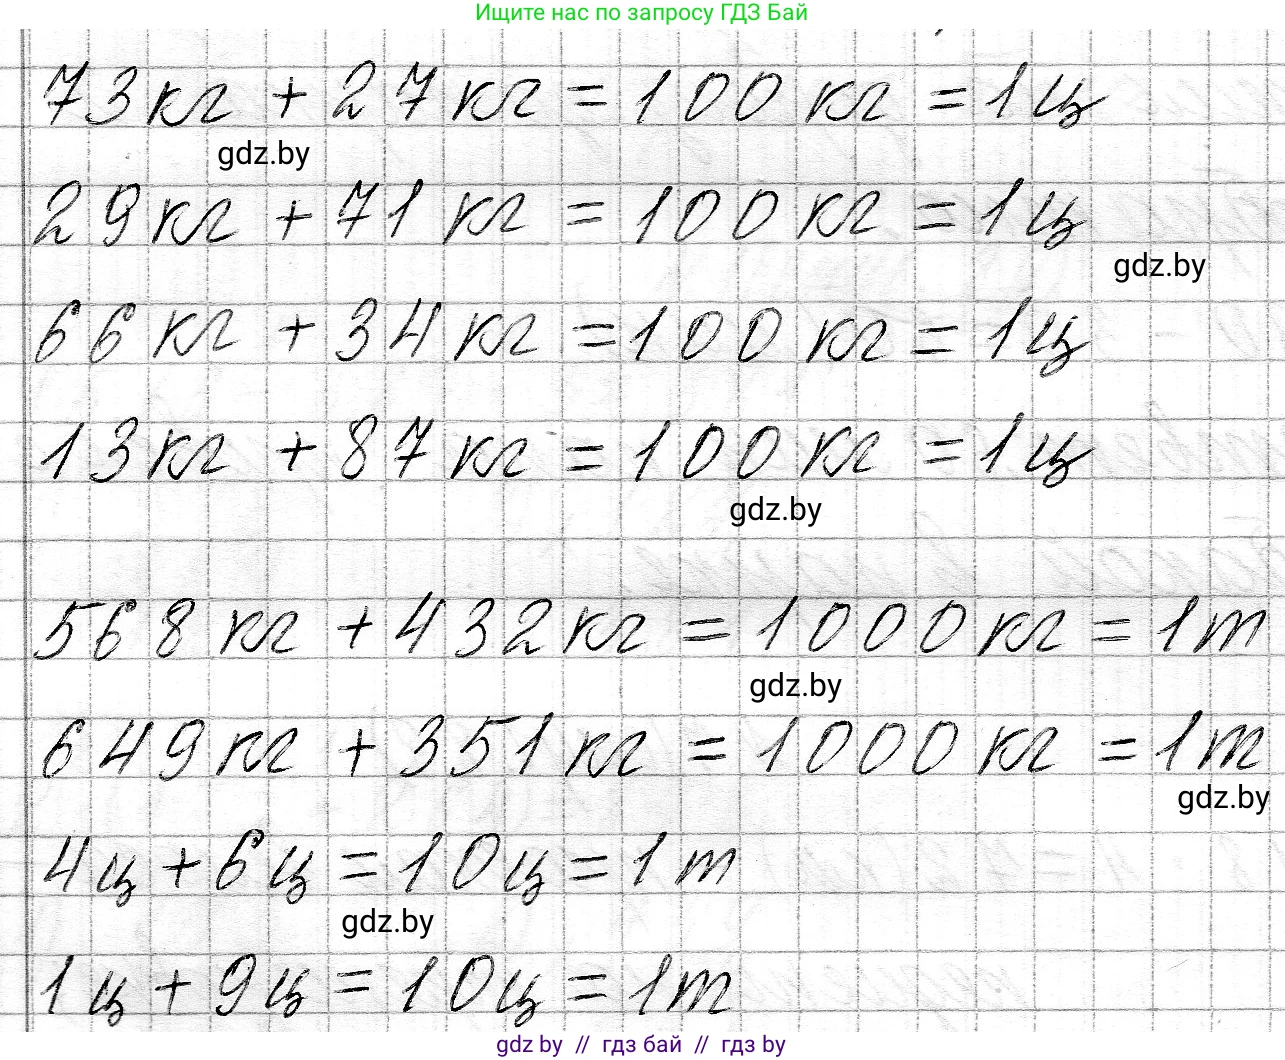 Ищите нас по запросу ГДЗ Бай
73 кг + 27 кг = 100 кг = 1 ц
gdz.by
29 кг + 71 кг = 100 кг = 1 ц
gdz.by
66 кг + 34 кг = 100 кг = 1 ц
13 кг + 87 кг = 100 кг = 1 ц
gdz.by
568 кг + 432 кг = 1000 кг = 1 т
gdz.by
649 кг + 351 кг = 1000 кг = 1 т
gdz.by
4 ц + 6 ц = 10 ц = 1 т
gdz.by
1 ц + 9 ц = 10 ц = 1 т
gdz by // гдз бай // гдз by